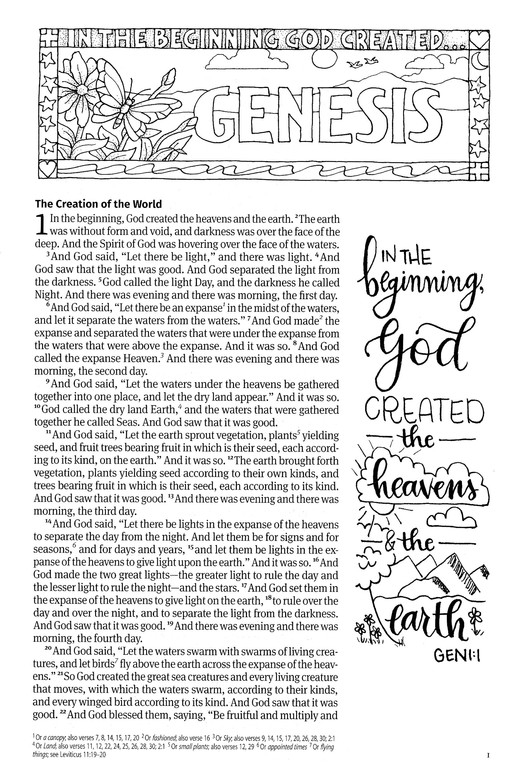 IN THE BEGINNING GOD CREATED...
GENESIS
The Creation of the World
1 In the beginning, God created the heavens and the earth. ²The earth
was without form and void, and darkness was over the face of the
deep. And the Spirit of God was hovering over the face of the waters.
³And God said, “Let there be light,” and there was light. ⁴And
God saw that the light was good. And God separated the light from
the darkness. ⁵God called the light Day, and the darkness he called
Night. And there was evening and there was morning, the first day.
⁶And God said, “Let there be an expanse¹ in the midst of the waters,
and let it separate the waters from the waters.” ⁷And God made² the
expanse and separated the waters that were under the expanse from
the waters that were above the expanse. And it was so. ⁸And God
called the expanse Heaven.³ And there was evening and there was
morning, the second day.
⁹And God said, “Let the waters under the heavens be gathered
together into one place, and let the dry land appear.” And it was so.
¹⁰God called the dry land Earth,⁴ and the waters that were gathered
together he called Seas. And God saw that it was good.
¹¹And God said, “Let the earth sprout vegetation, plants⁵ yielding
seed, and fruit trees bearing fruit in which is their seed, each accord-
ing to its kind, on the earth.” And it was so. ¹²The earth brought forth
vegetation, plants yielding seed according to their own kinds, and
trees bearing fruit in which is their seed, each according to its kind.
And God saw that it was good. ¹³And there was evening and there was
morning, the third day.
¹⁴And God said, “Let there be lights in the expanse of the heavens
to separate the day from the night. And let them be for signs and for
seasons,⁶ and for days and years, ¹⁵and let them be lights in the ex-
panse of the heavens to give light upon the earth.” And it was so. ¹⁶And
God made the two great lights—the greater light to rule the day and
the lesser light to rule the night—and the stars. ¹⁷And God set them in
the expanse of the heavens to give light on the earth, ¹⁸to rule over the
day and over the night, and to separate the light from the darkness.
And God saw that it was good. ¹⁹And there was evening and there was
morning, the fourth day.
²⁰And God said, “Let the waters swarm with swarms of living crea-
tures, and let birds⁷ fly above the earth across the expanse of the heav-
ens.” ²¹So God created the great sea creatures and every living creature
that moves, with which the waters swarm, according to their kinds,
and every winged bird according to its kind. And God saw that it was
good. ²²And God blessed them, saying, “Be fruitful and multiply and
¹ Or a canopy; also verses 7, 8, 14, 15, 17, 20 ² Or fashioned; also verse 16 ³ Or Sky; also verses 9, 14, 15, 17, 20, 26, 28, 30; 2:1
⁴ Or Land; also verses 11, 12, 22, 24, 25, 26, 28, 30; 2:1 ⁵ Or small plants; also verses 12, 29 ⁶ Or appointed times ⁷ Or flying
things; see Leviticus 11:19–20
IN THE
beginning,
God
CREATED
the
heavens
& the
earth
GEN 1:1
1